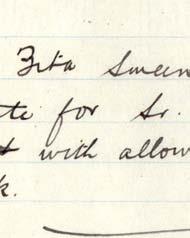 Zita Sween
te for Sr.
t with allow
k.